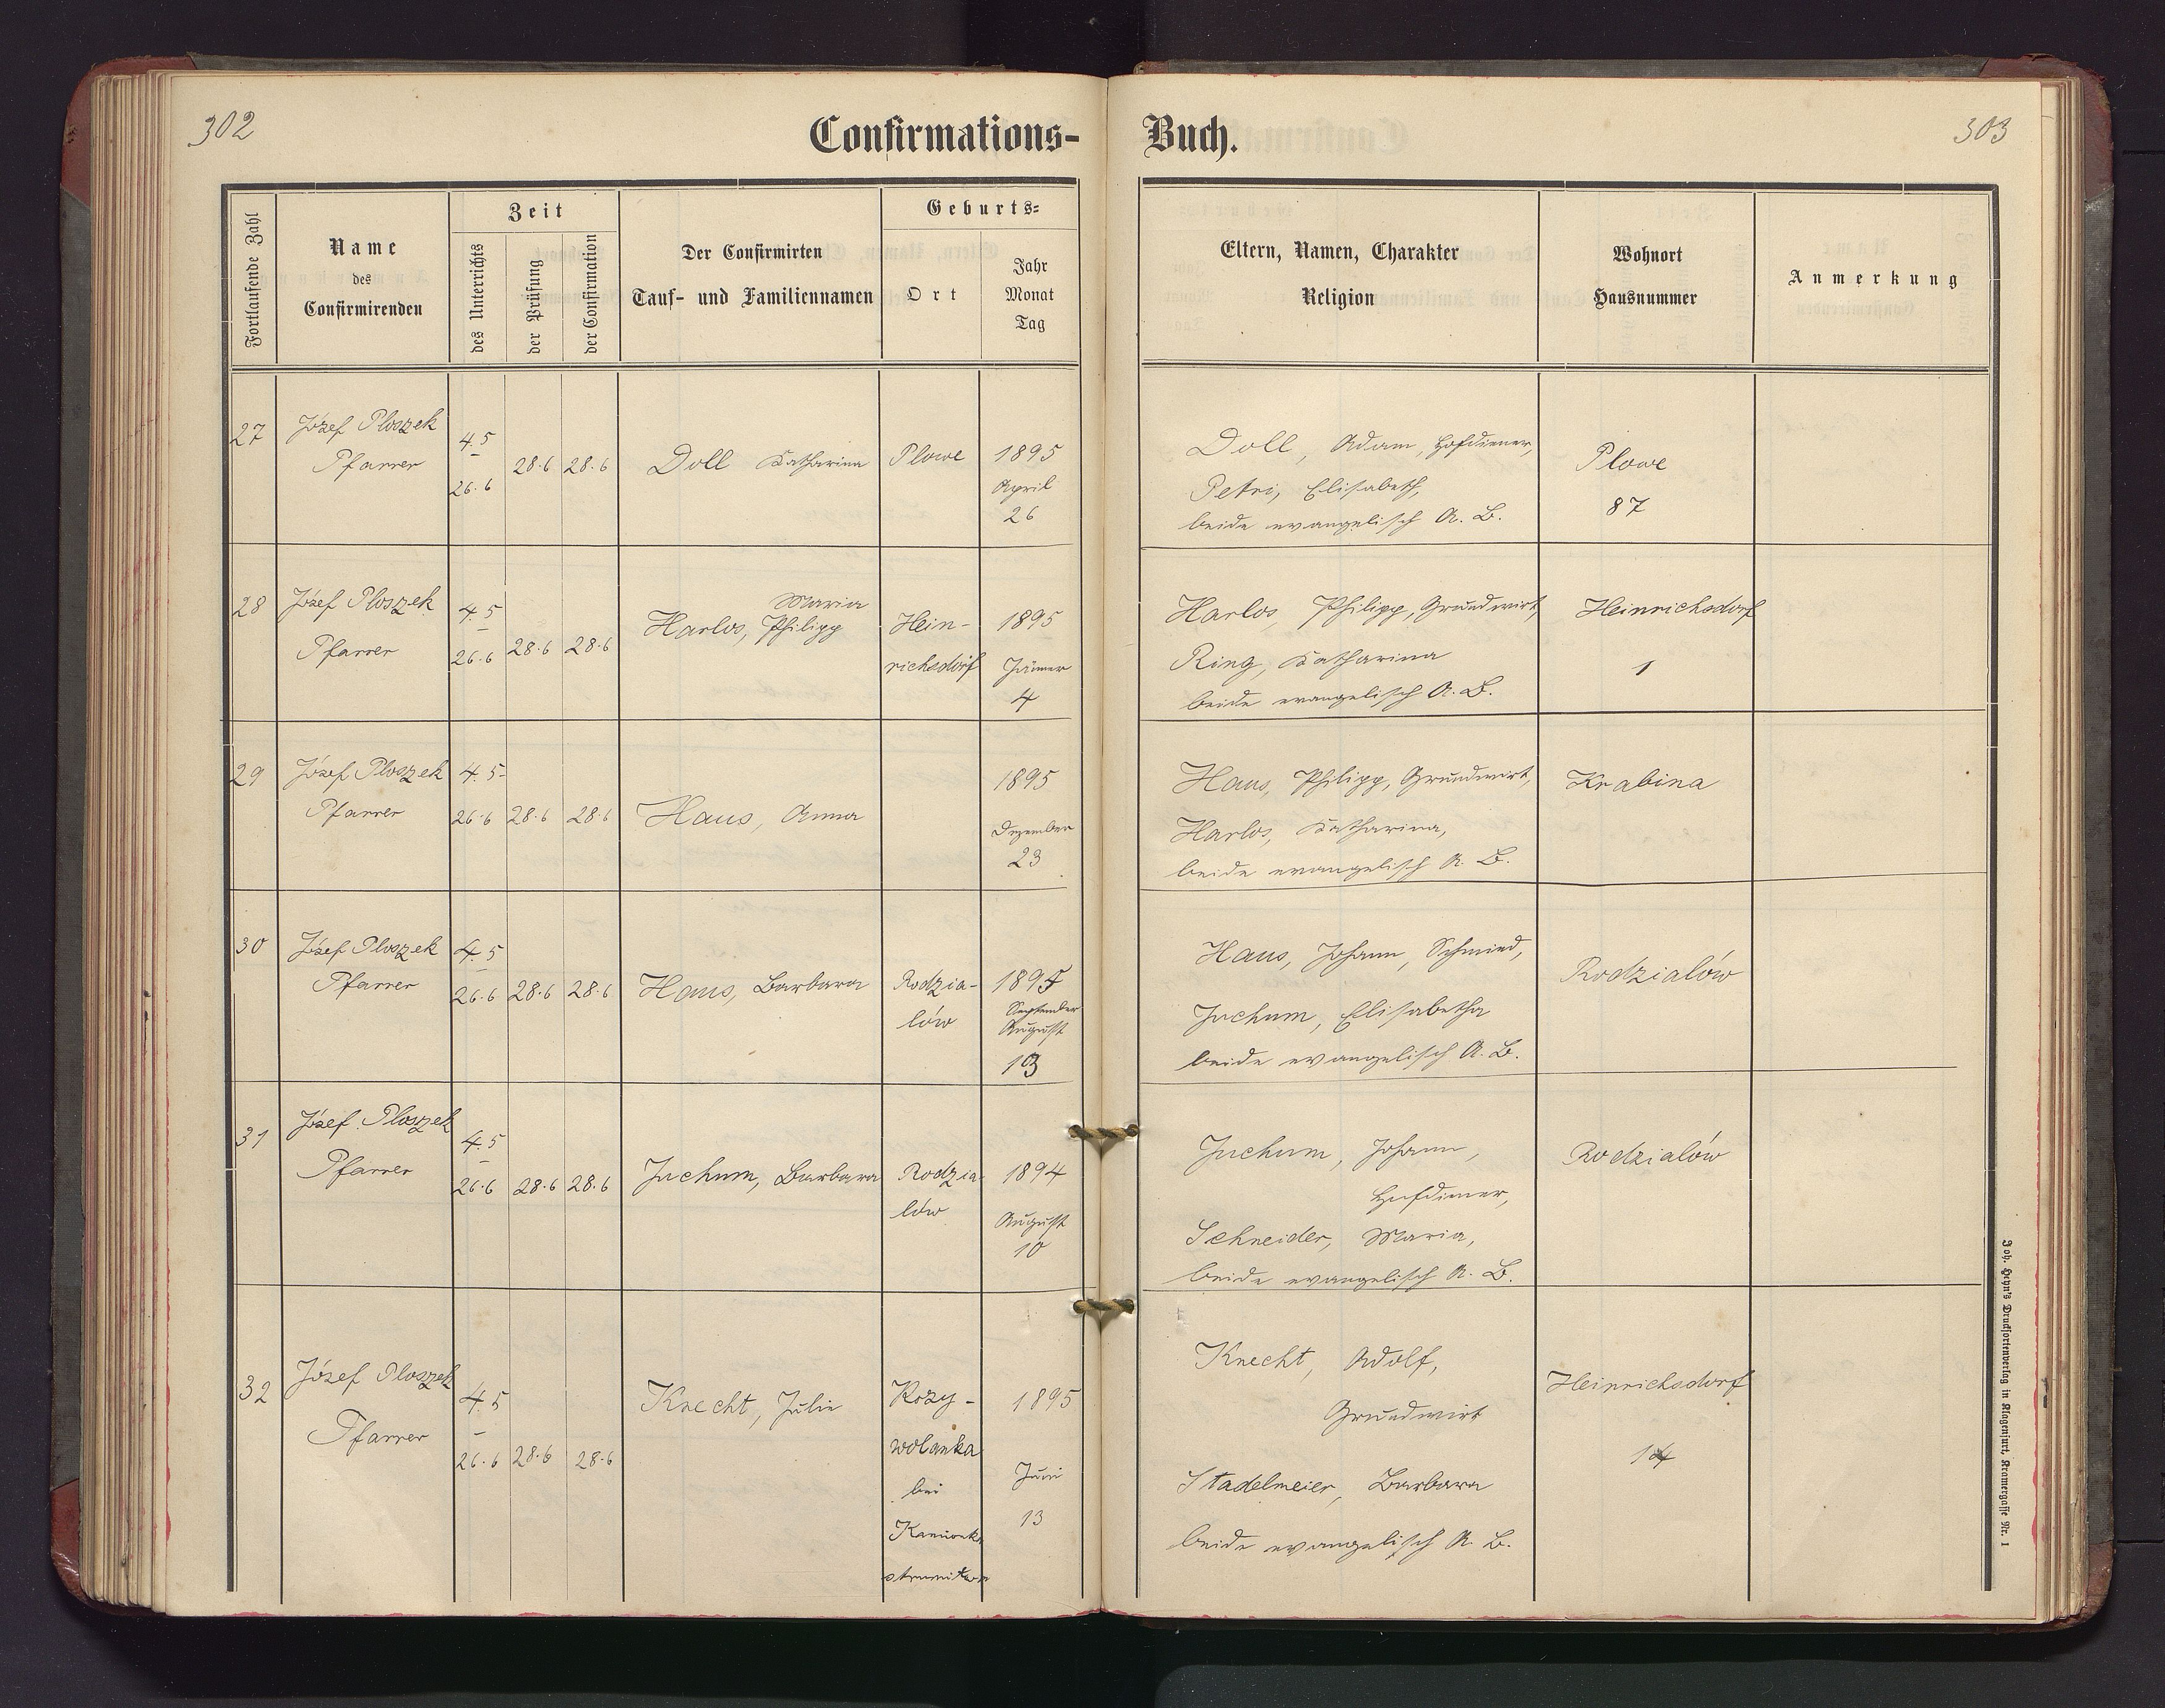 302
Confirmations-
Fortlaufende Zahl
Name
des
Confirmirenden
Zeit
des Unterrichts
der Prüfung
der Confirmation
Der Confirmirten
Tauf- und Familiennamen
Geburts-
Ort
Jahr
Monat
Tag
27
Józef Ploszek
Pfarrer
4.5
-
26.6
28.6
28.6
Doll Katharina
Plowe
1895
April
26
28
Józef Ploszek
Pfarrer
4.5
-
26.6
28.6
28.6
Maria
Harlos, Philipp
Hein-
richsdorf
1895
Jänner
4
29
Józef Ploszek
Pfarrer
4.5-
26.6
28.6
28.6
Haus, Anna
1895
Dezember
23
30
Józef Ploszek
Pfarrer
4.5
-
26.6
28.6
28.6
Haus, Barbara
Rodzia-
lów
1895
September
August
13
31
Józef Ploszek
Pfarrer
4.5
-
26.6
28.6
28.6
Juchum, Barbara
Rodzia-
lów
1894
August
10
32
Józef Ploszek
Pfarrer
4.5
-
26.6
28.6
28.6
Knecht, Julie
Rozy-
wolanka
bei
Kamionka
1895
Juni
13
Buch.
303
Eltern, Namen, Charakter
Religion
Wohnort
Hausnummer
Anmerkung
Doll, Adam, Hofdiener,
Petri, Elisabeth,
beide evangelisch A. B.
Plowe
87
Harlos, Philipp, Grundwirt,
Ring, Katharina
beide evangelisch A. B.
Heinrichsdorf
1
Haus, Philipp, Grundwirt,
Harlos, Katharina,
beide evangelisch A. B.
Krabina
Haus, Johann, Schmied,
Juchum, Elisabetha
beide evangelisch A. B.
Rodzialów
Juchum, Johann,
Hofdiener,
Schneider, Maria,
beide evangelisch A. B.
Rodzialów
Knecht, Adolf,
Grundwirt
Stadelmeier, Barbara
beide evangelisch A. B.
Heinrichsdorf
14
Joh. Heyn's Drucksortenverlag in Klagenfurt, Kramergasse Nr. 1